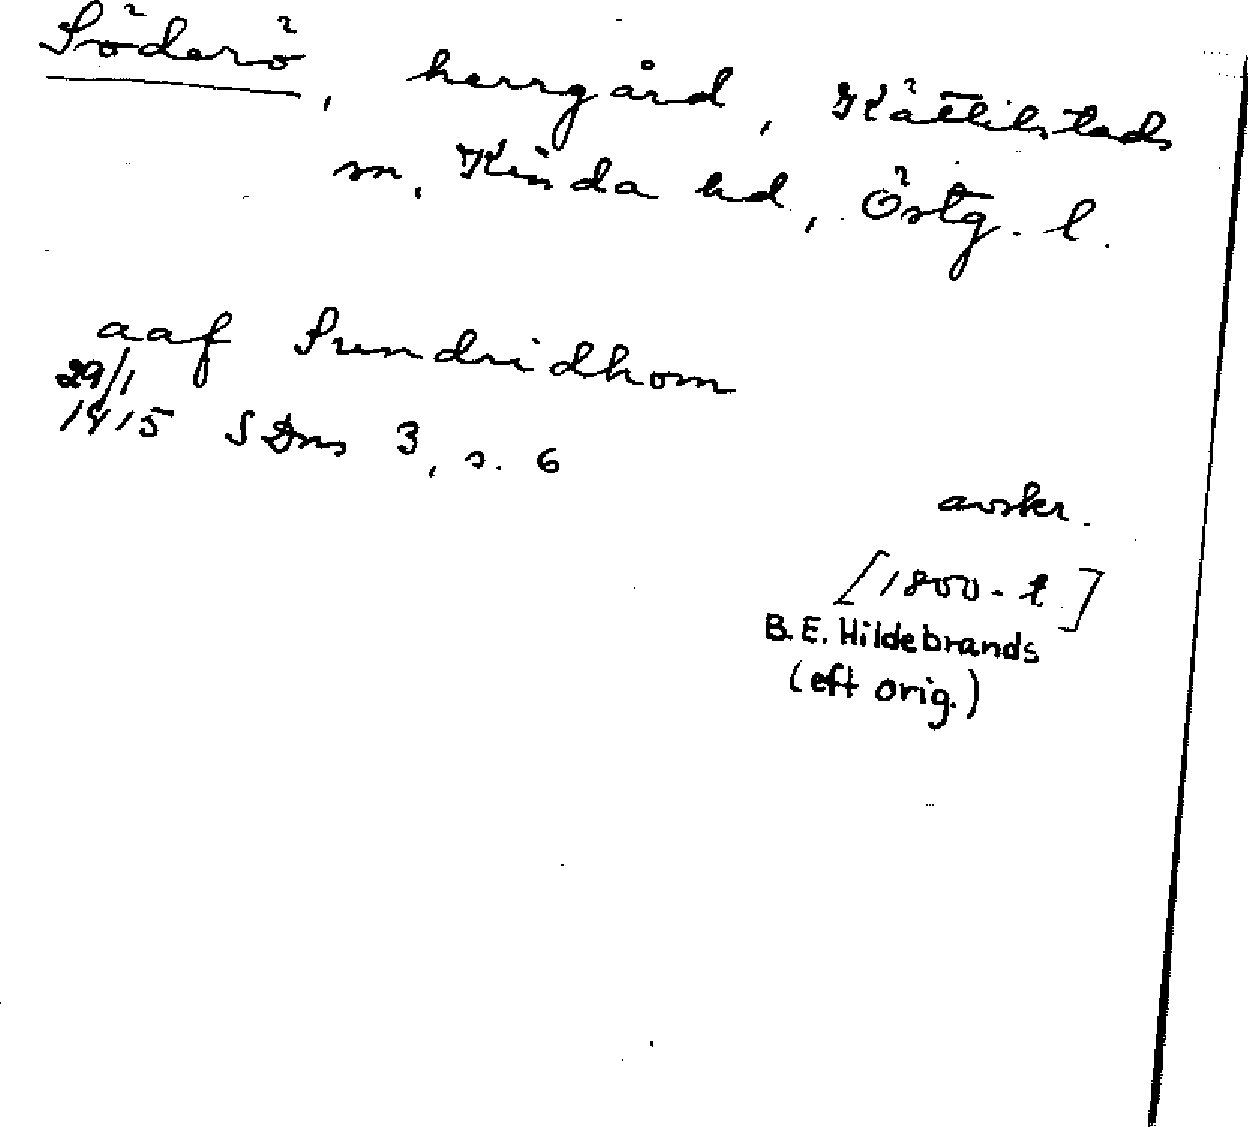 Söderö, herrgård, Kättilstads
sn, Kinda hd, Östg. l.
aaf Sundridhom
29/1
1415 SDns 3, s. 6
avskr.
[1800-t.]
B.E. Hildebrands
(eft orig.)